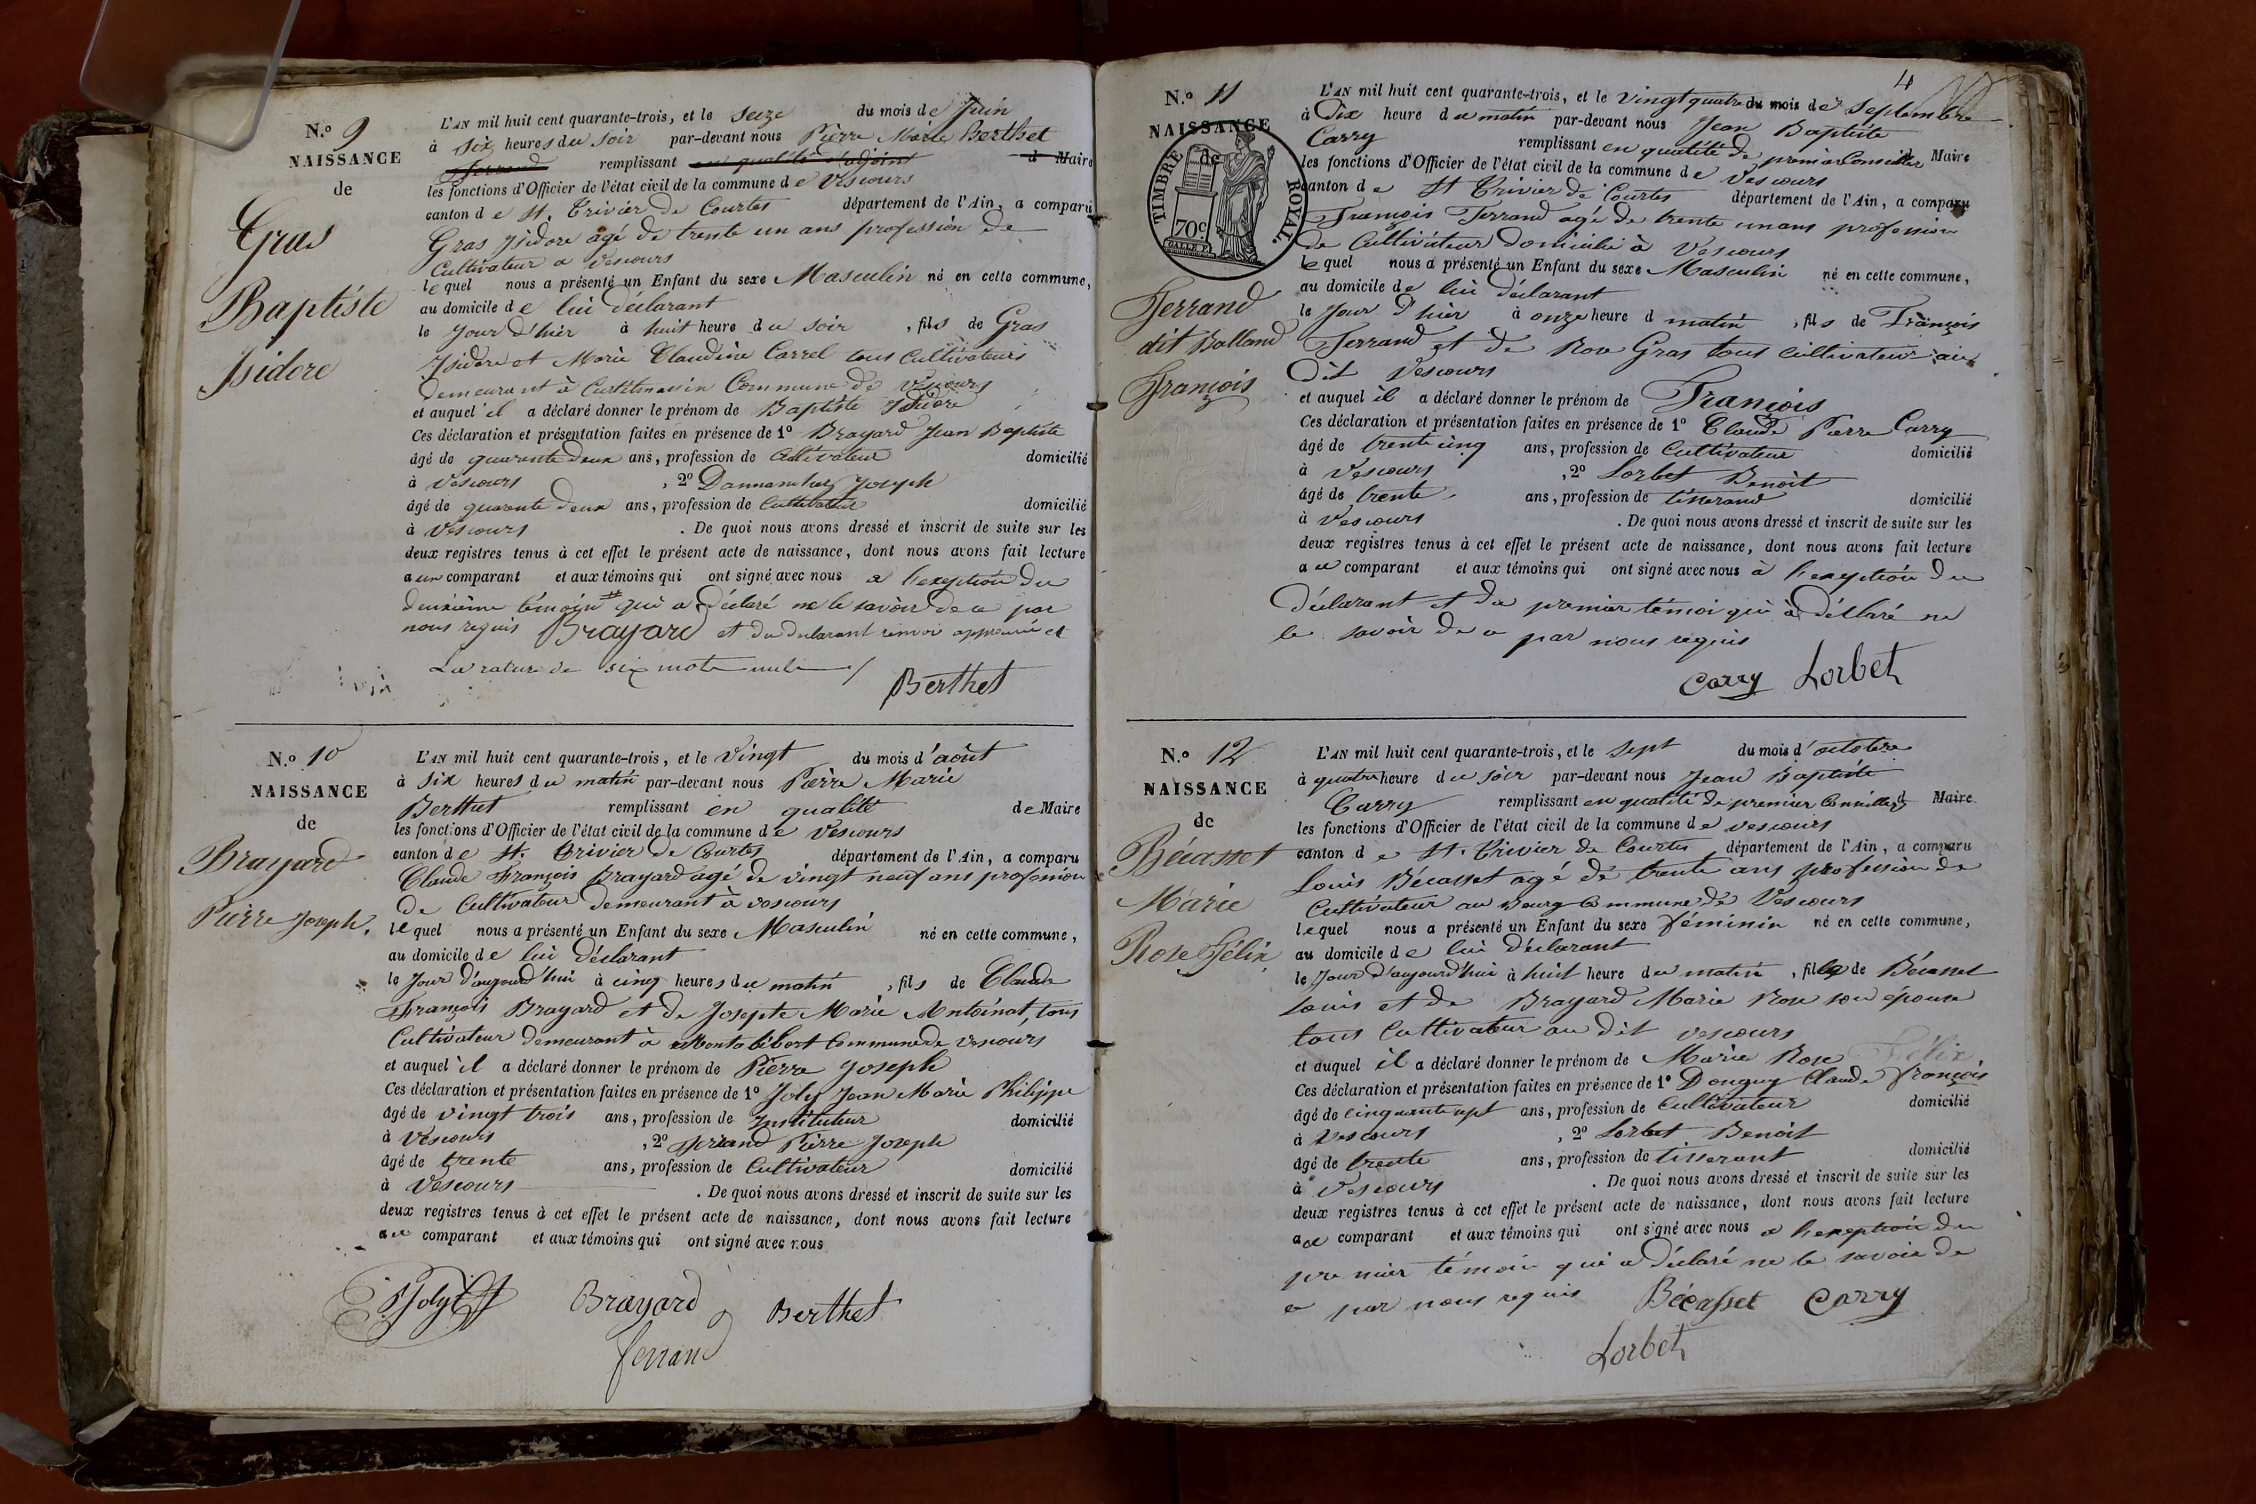 N.º 9
NAISSANCE
de
Gras
Baptiste
Isidore
L'AN mil huit cent quarante-trois, et le seize du mois de Juin
à six heures du soir par-devant nous Pierre Marie Berthet
Ferrand remplissant en qualité d'adjoint d Maire
les fonctions d'Officier de l'état civil de la commune de Vescours
canton de St. Trivier de Courtes département de l'Ain, a comparu
Gras Isidore agé de trente un ans profession de
Cultivateur a Vescours
lequel nous a présenté un Enfant du sexe Masculin né en cette commune,
au domicile de lui déclarant
le Jour d'hier à huit heure du soir, fils de Gras
Isidore et Marie Claudine Carrel tous Cultivateurs
demeurant à Commune de Vescours
et auquel il a déclaré donner le prénom de Baptiste Isidore
Ces déclaration et présentation faites en présence de 1º Brayard Jean Baptiste
âgé de quarante deux ans, profession de Cultivateur domicilié
à Vescours, 2º Joseph
âgé de quarante deux ans, profession de Cultivateur domicilié
à Vescours. De quoi nous avons dressé et inscrit de suite sur les
deux registres tenus à cet effet le présent acte de naissance, dont nous avons fait lecture
au comparant et aux témoins qui ont signé avec nous a l'exeption du
deuxième témoin # qui a déclaré ne le savoir de ce par
nous requis Brayard et du déclarant renvoi approuvé et
La rature de six mots nulle
Berthet
N.º 10
NAISSANCE
de
Brayard
Pierre Joseph.
L'AN mil huit cent quarante-trois, et le Vingt du mois d'août
à six heures du matin par-devant nous Pierre Marie
Berthet remplissant en qualité de Maire
les fonctions d'Officier de l'état civil de la commune de Vescours
canton de St. Trivier de Courtes département de l'Ain, a comparu
Claude François Brayard agé de vingt neuf ans profession
de Cultivateur demeurant à Vescours
lequel nous a présenté un Enfant du sexe Masculin né en cette commune,
au domicile de lui déclarant
le Jour d'aujourd'hui à cinq heures du matin, fils de Claude
François Brayard et de Josephte Marie Antoinat, tous
Cultivateur demeurant à Montalibort Commune de Vescours
et auquel il a déclaré donner le prénom de Pierre Joseph
Ces déclaration et présentation faites en présence de 1º Joly Jean Marie Philippe
âgé de vingt trois ans, profession de Instituteur domicilié
à Vescours, 2º Ferrand Pierre Joseph
âgé de trente ans, profession de Cultivateur domicilié
à Vescours. De quoi nous avons dressé et inscrit de suite sur les
deux registres tenus à cet effet le présent acte de naissance, dont nous avons fait lecture
au comparant et aux témoins qui ont signé avec nous
PJoly Brayard Berthet
ferrand
4
N.º 11
NAISSANCE
de
TIMBRE ROYAL.
70c
Ferrand
dit Balland
François
L'AN mil huit cent quarante-trois, et le vingt quatre du mois de Septembre
à Dix heure du matin par-devant nous Jean Baptiste
Carry remplissant en qualité de premier Conseiller d Maire
les fonctions d'Officier de l'état civil de la commune de Vescours
canton de St Trivier de Courtes département de l'Ain, a comparu
François Ferrand agé de trente un ans profession
de Cultivateur domicilié à Vescours
lequel nous a présenté un Enfant du sexe Masculin né en cette commune,
au domicile de lui déclarant
le Jour d'hier à onze heure d matin, fils de François
Ferrand et de Rose Gras tous cultivateur au
dit Vescours
et auquel il a déclaré donner le prénom de François
Ces déclaration et présentation faites en présence de 1º Claude Pierre Carry
âgé de trente cinq ans, profession de Cultivateur domicilié
à Vescours, 2º Lorbet Benoit
âgé de trente ans, profession de tisserand domicilié
à Vescours. De quoi nous avons dressé et inscrit de suite sur les
deux registres tenus à cet effet le présent acte de naissance, dont nous avons fait lecture
au comparant et aux témoins qui ont signé avec nous à l'exeption du
déclarant et du premier témoi qui a déclaré ne
le savoir de ce par nous requis
Carry Lorbet
N.º 12
NAISSANCE
de
Bécasset
Marie
Rose Félix
L'AN mil huit cent quarante-trois, et le sept du mois d'octobre
à quatre heure du soir par-devant nous Jean Baptiste
Carry remplissant en qualité de premier Conseiller d Maire
les fonctions d'Officier de l'état civil de la commune de Vescours
canton de St. Trivier de Courtes département de l'Ain, a comparu
Louis Bécasset agé de trente ans profession de
Cultivateur au Bourg Commune de Vescours
lequel nous a présenté un Enfant du sexe féminin né en cette commune,
au domicile de lui déclarant
le Jour d'aujourd'hui à huit heure du matin, fille de Bécasset
Louis et de Brayard Marie Rose son épouse
tous Cultivateur au dit Vescours
et auquel il a déclaré donner le prénom de Marie Rose Félix
Ces déclaration et présentation faites en présence de 1º Donguy Claude françois
âgé de cinquante sept ans, profession de Cultivateur domicilié
à Vescours, 2º Lorbet Benoit
âgé de trente ans, profession de tisserant domicilié
à Vescours. De quoi nous avons dressé et inscrit de suite sur les
deux registres tenus à cet effet le présent acte de naissance, dont nous avons fait lecture
au comparant et aux témoins qui ont signé avec nous a l'exeption du
premier témoin qui a déclaré ne le savoir de
ce par nous requis Bécasset Carry
Lorbet